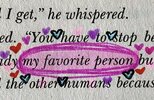 I get," he whispered.
ed. "You have to stop be
ady my favorite person bu
t the other humans because